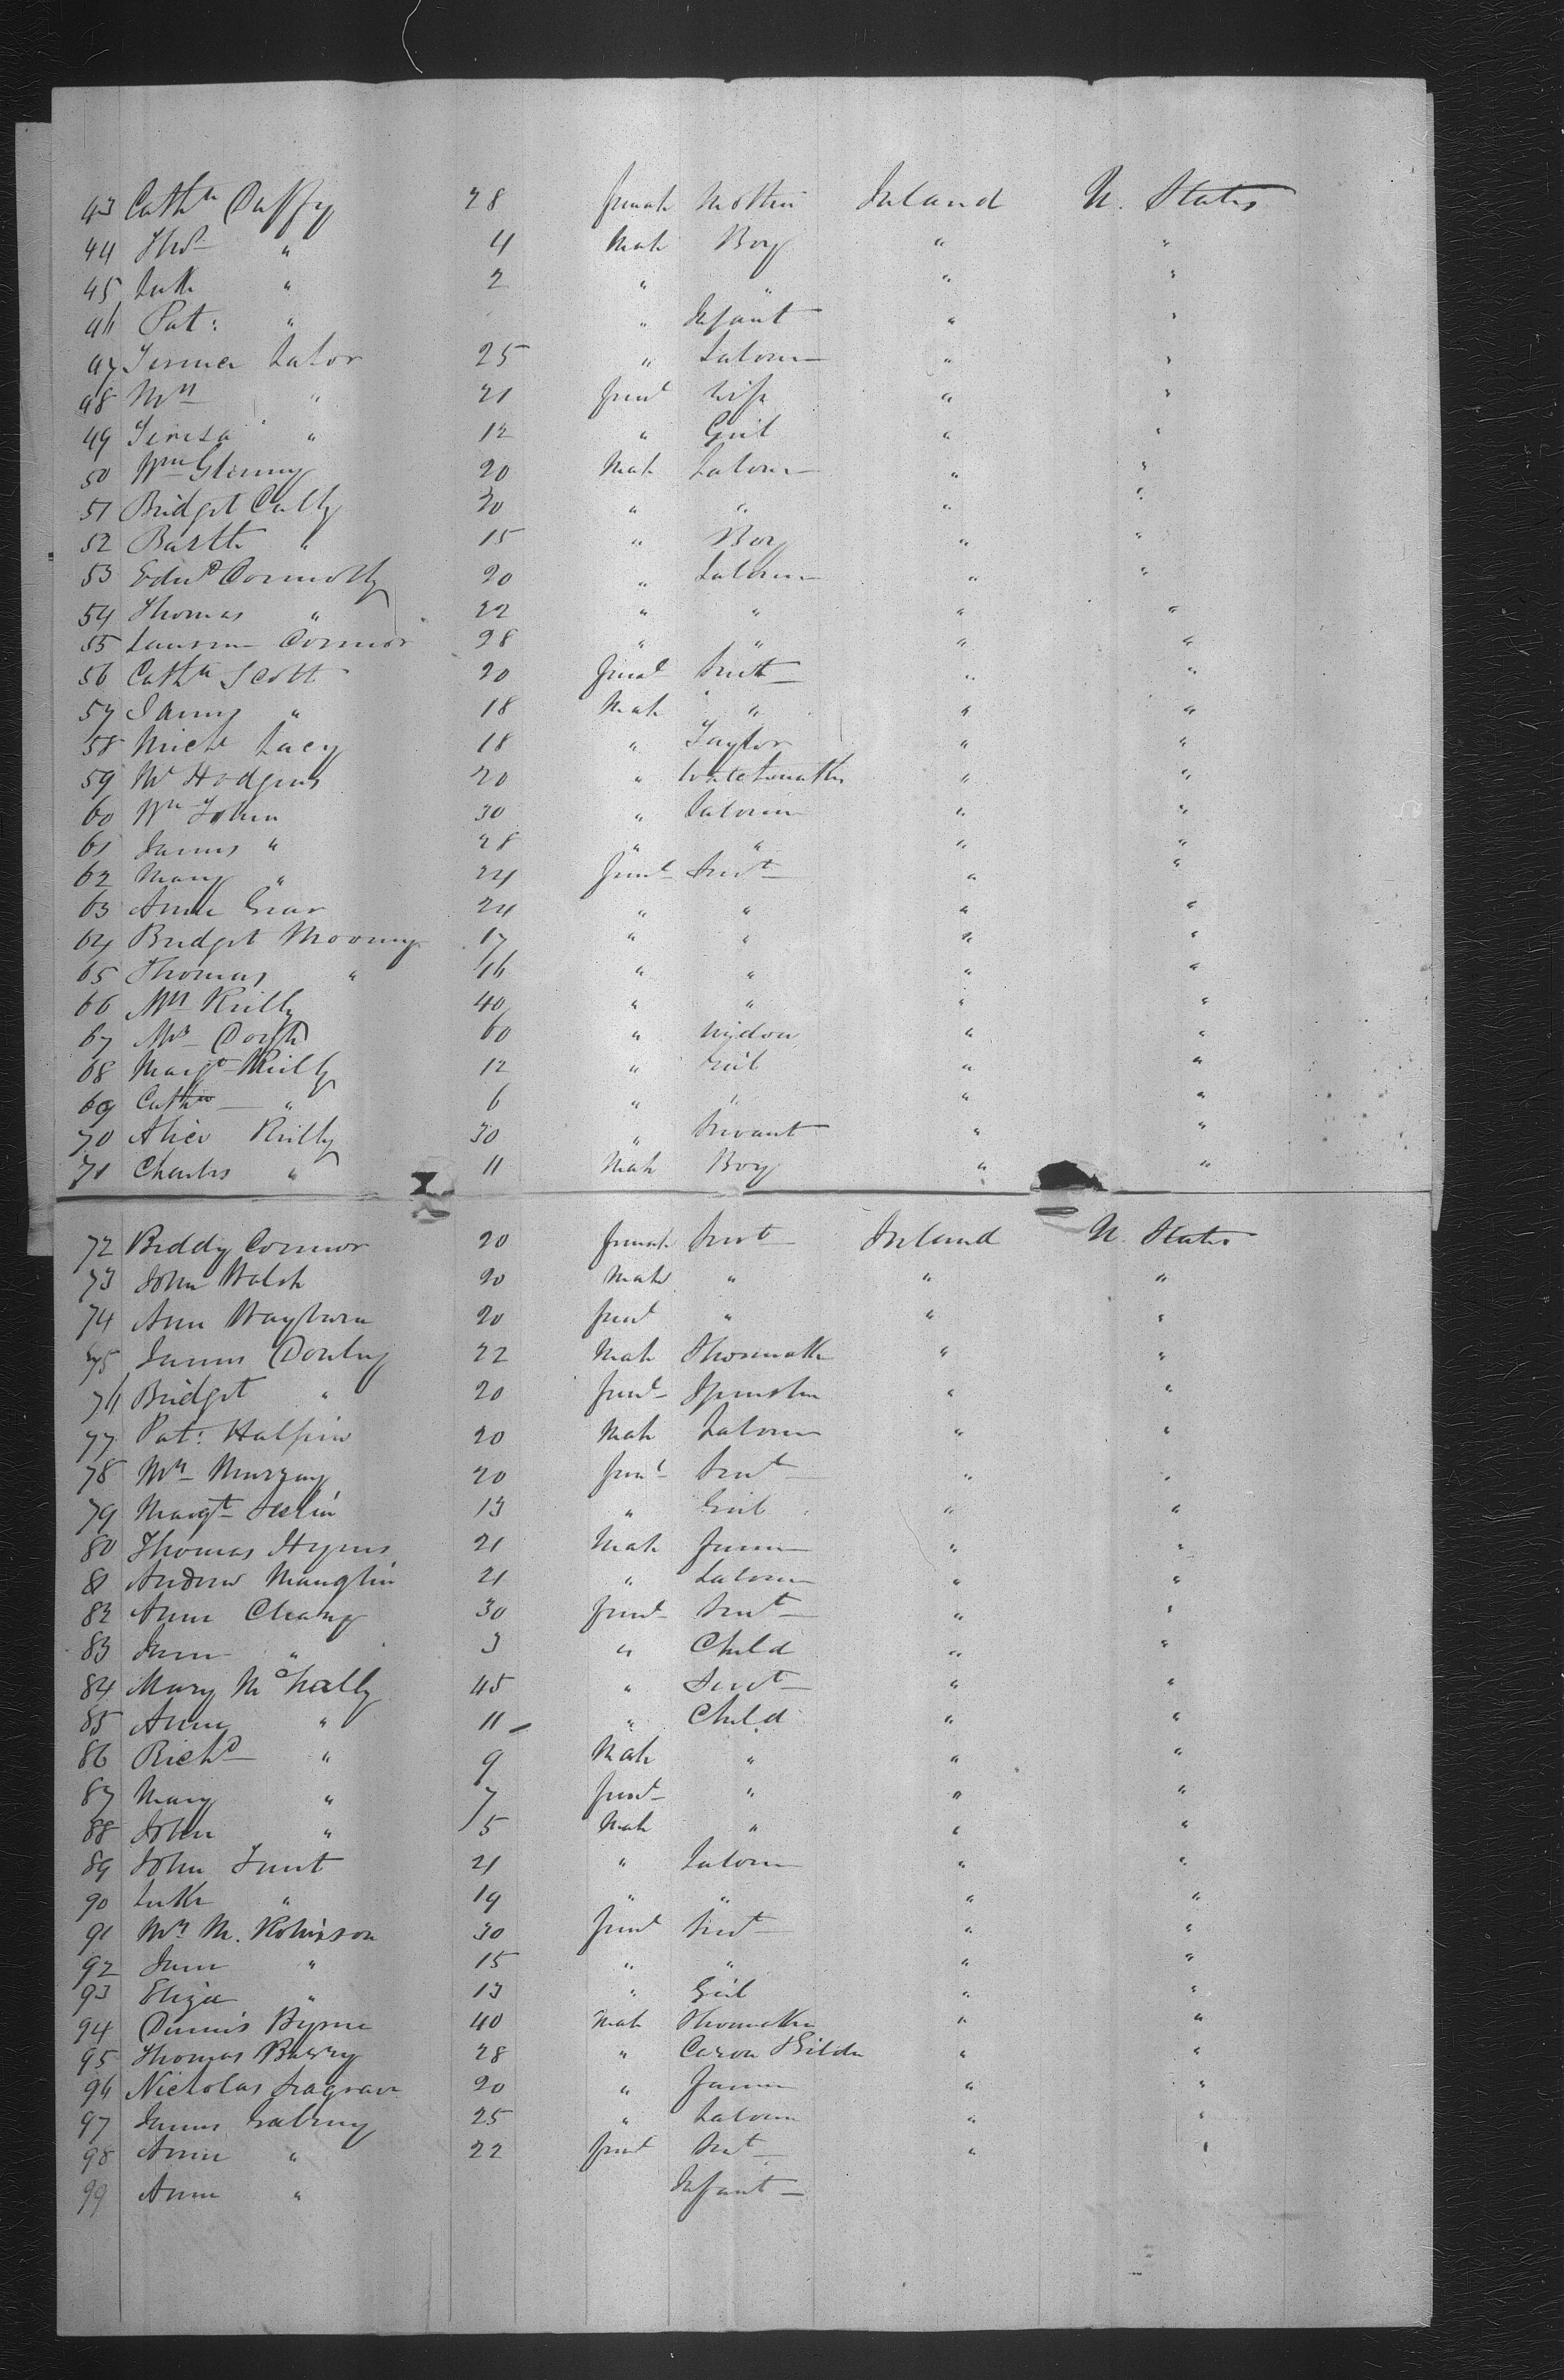 43 Cathn Duffy 28 female Mother Ireland U. States
44 Thos " 4 Male Boy " "
45 Luke " 2 " " " "
46 Pat: " " Infant " "
47 Lalor 25 " Laborer " "
48 Mrs " 21 feml Wife " "
49 Teresa " 12 " Girl " "
50 Wm Glenny 20 Male Laborer " "
51 Bridget Cally 30 " " " "
52 Barth " 15 " Boy " "
53 Edwd Connolly 20 " Laborer " "
54 Thomas " 22 " " " "
55 Connor 28 " " " "
56 Cathn Scott 20 femal Srvt " "
57 James " 18 Male " " "
58 Michl Lacy 18 " Taylor " "
59 Mr Hodgins 20 " Watchmaker " "
60 Wm Tobin 30 " Laborer " "
61 James " 28 " " " "
62 Mary " 24 feml Servt " "
63 Anne Gear 24 " " " "
64 Bridget Mooney 17 " " " "
65 Thomas " 16 " " " "
66 Mrs Reilly 40 " " " "
67 Mrs 60 " Widow " "
68 Margt Reilly 12 " Girl " "
69 Cathn " 6 " " " "
70 Alice Reilly 30 " Servant " "
71 Charles " 11 Male Boy " "
72 Biddy Connor 20 female Servt Ireland U. States
73 John Walsh 20 Male " " "
74 Ann Wayburn 20 feml " " "
75 James Dowling 22 Male Shoemaker " "
76 Bridget " 20 feml Spinster " "
77 Pat: Halpin 20 Male Laborer " "
78 Mrs Murray 20 feml Servt " "
79 Margt 13 " Girl " "
80 Thomas Hynes 21 Male Farmer " "
81 Andrew Manglin 21 " Laborer " "
82 Anne Champ 30 feml Servt " "
83 Jane " 3 " Child " "
84 Mary McNally 45 " Servt " "
85 Anne " 11 " Child " "
86 Richd " 9 Male " " "
87 Mary " 7 feml " " "
88 John " 5 Male " " "
89 John 21 " Laborer " "
90 Luke " 19 " " " "
91 Mrs M. Robinson 30 feml Servt " "
92 Jane " 15 " " " "
93 Eliza " 13 " Girl " "
94 Dennis Byrne 40 Male Shoemaker " "
95 Thomas Barry 28 " Builder " "
96 Nicholas Seagrave 20 " Farmer " "
97 James 25 " Laborer " "
98 Anne " 22 feml Servt " "
99 Anne " Infant